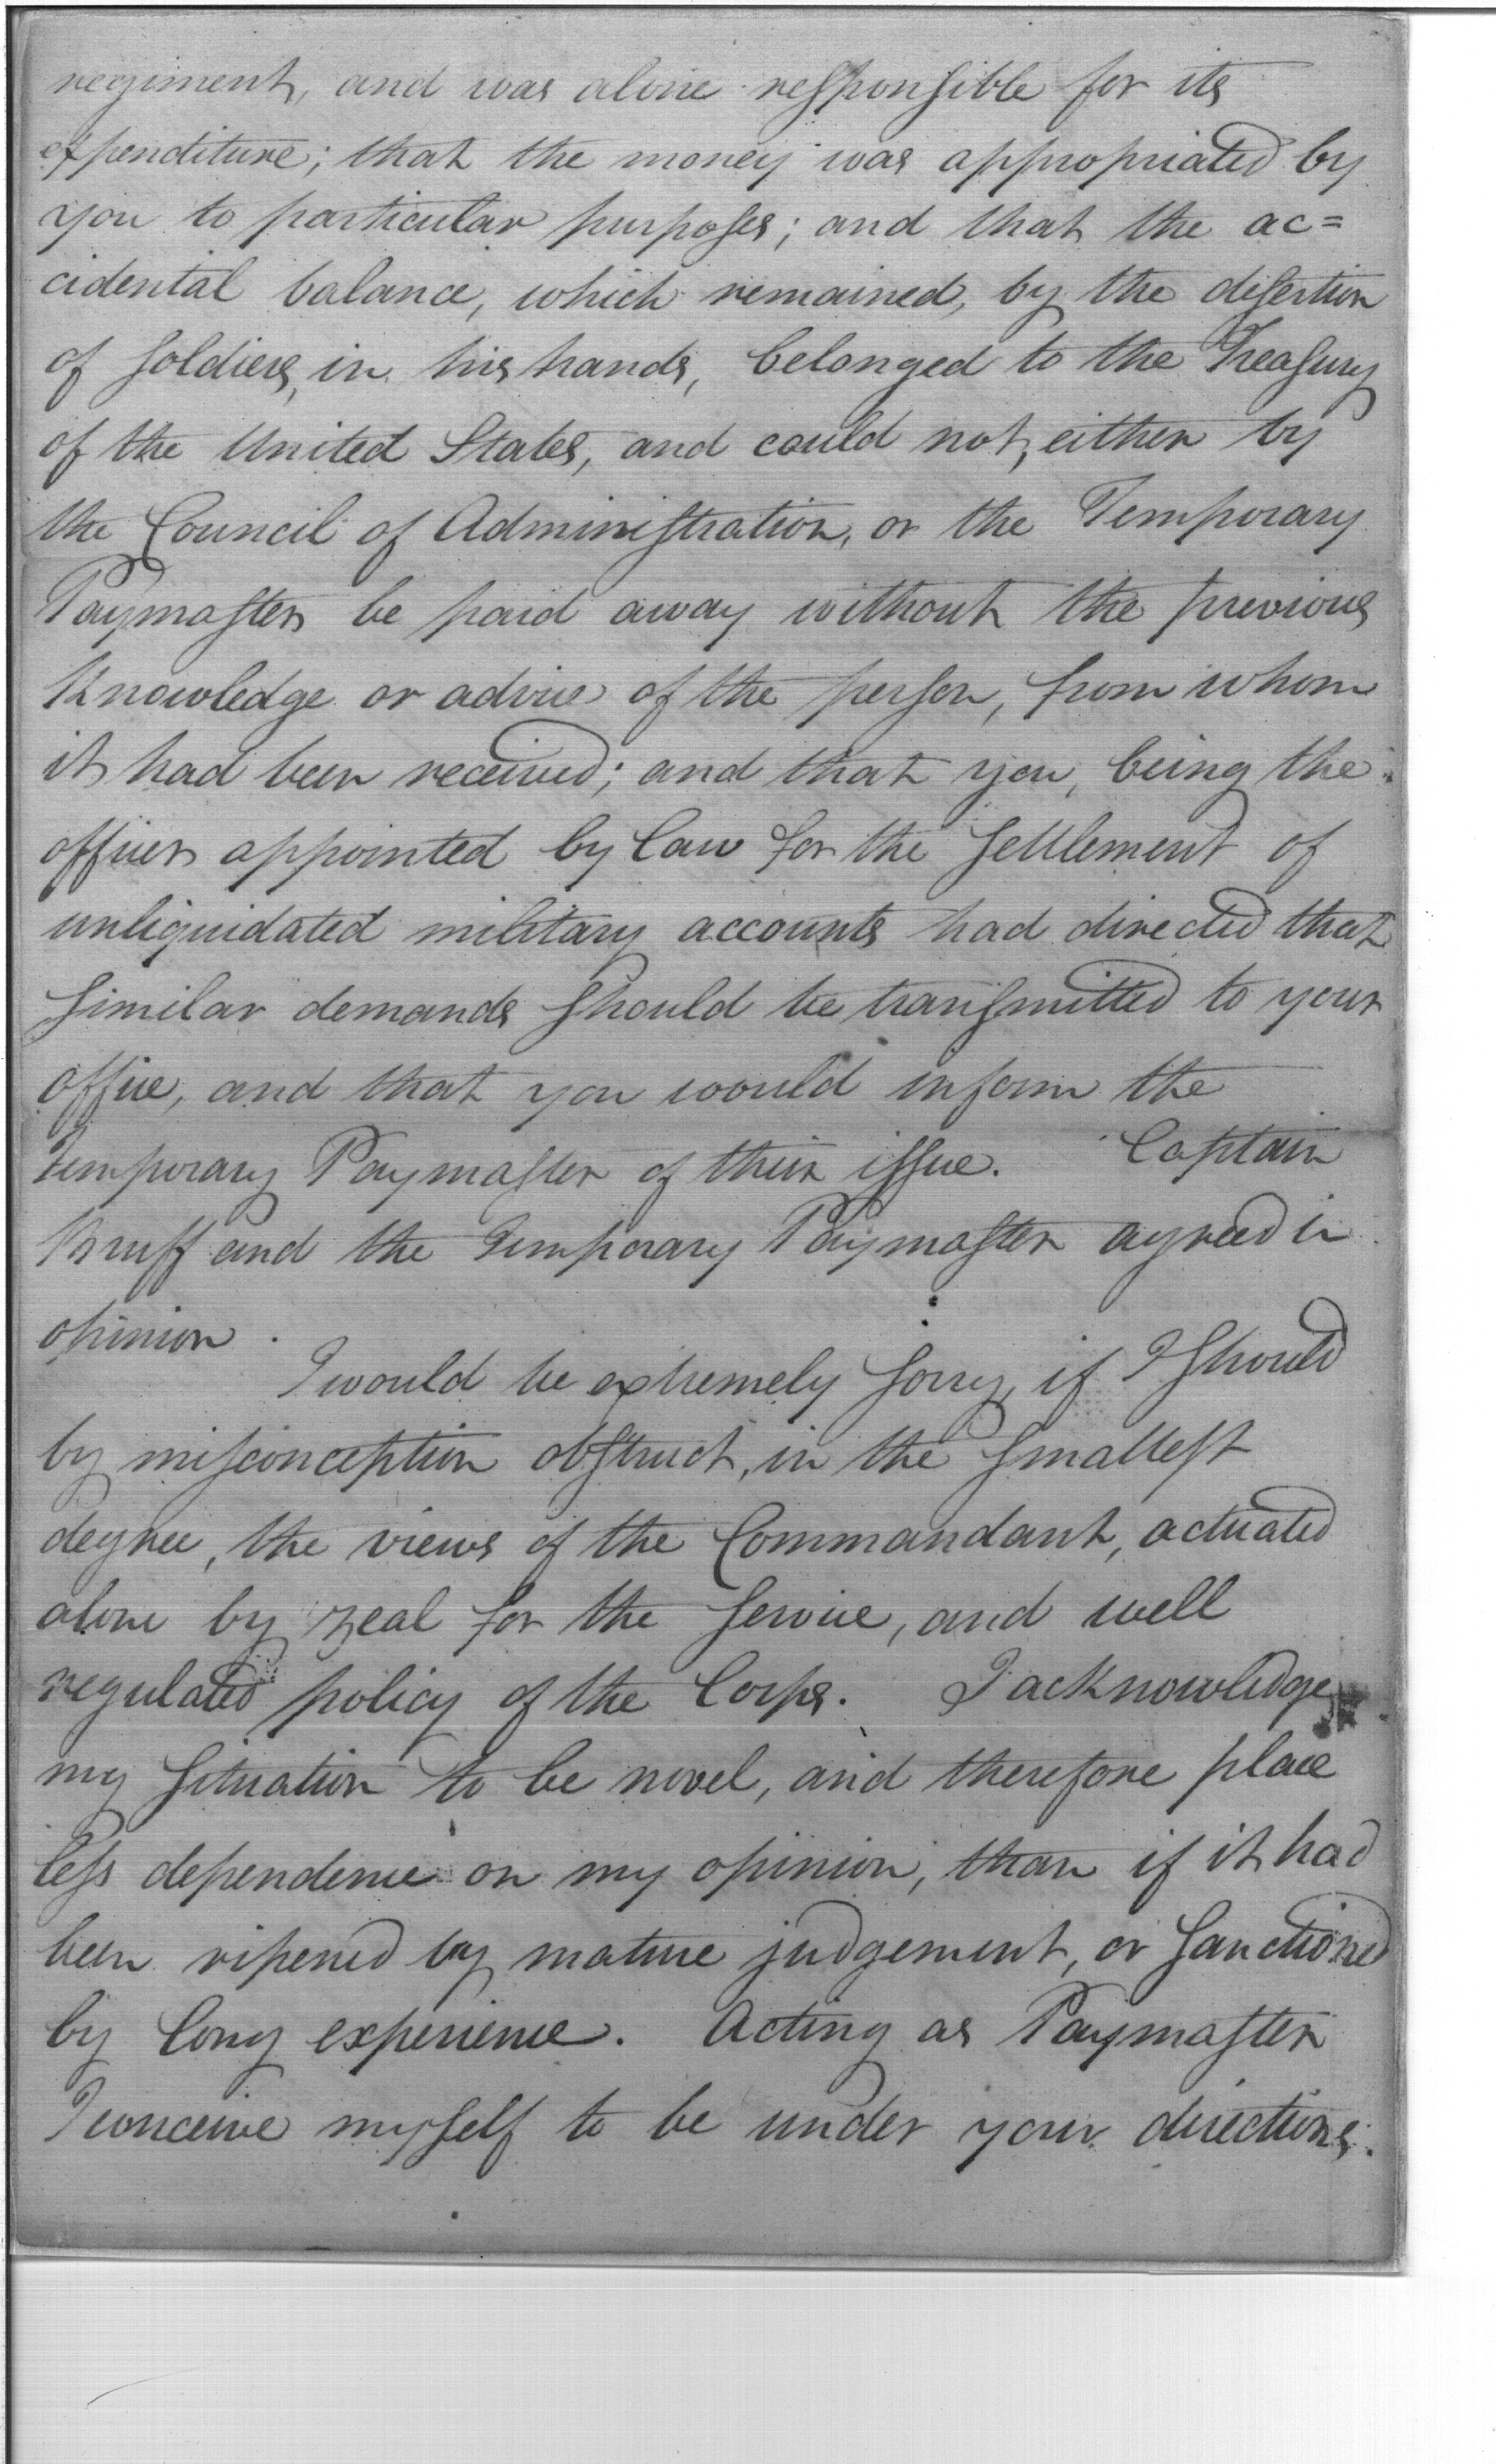 regiment, and was alone responsible for its
expenditure; that the money was appropriated by
you to particular purposes; and that the ac=
cidental balance, which remained, by the desertion
of soldiers, in his hands, belonged to the Treasury
of the United States, and could not, either by
the Council of Administration, or the Temporary
Paymaster be paid away without the previous
Knowledge or advice of the person, from whom
it had been received; and that you, being the
officer appointed by Law for the settlement of
unliquidated military accounts had directed that
similar demands should be transmitted to your
office, and that you would inform the
Temporary Paymaster of their issue. Captain
Bruff and the Temporary Paymaster agreed in
opinion.
I would be extremely sorry, if I should
by misconception obstruct, in the smallest
degree, the views of the Commandant, actuated
alone by zeal for the service, and well
regulated policy of the Corps. I acknowledge
my situation to be novel, and therefore place
less dependence on my opinion, than if it had
been ripened by mature judgement, or sanctioned
by long experience. Acting as Paymaster
I conceive myself to be under your directions.